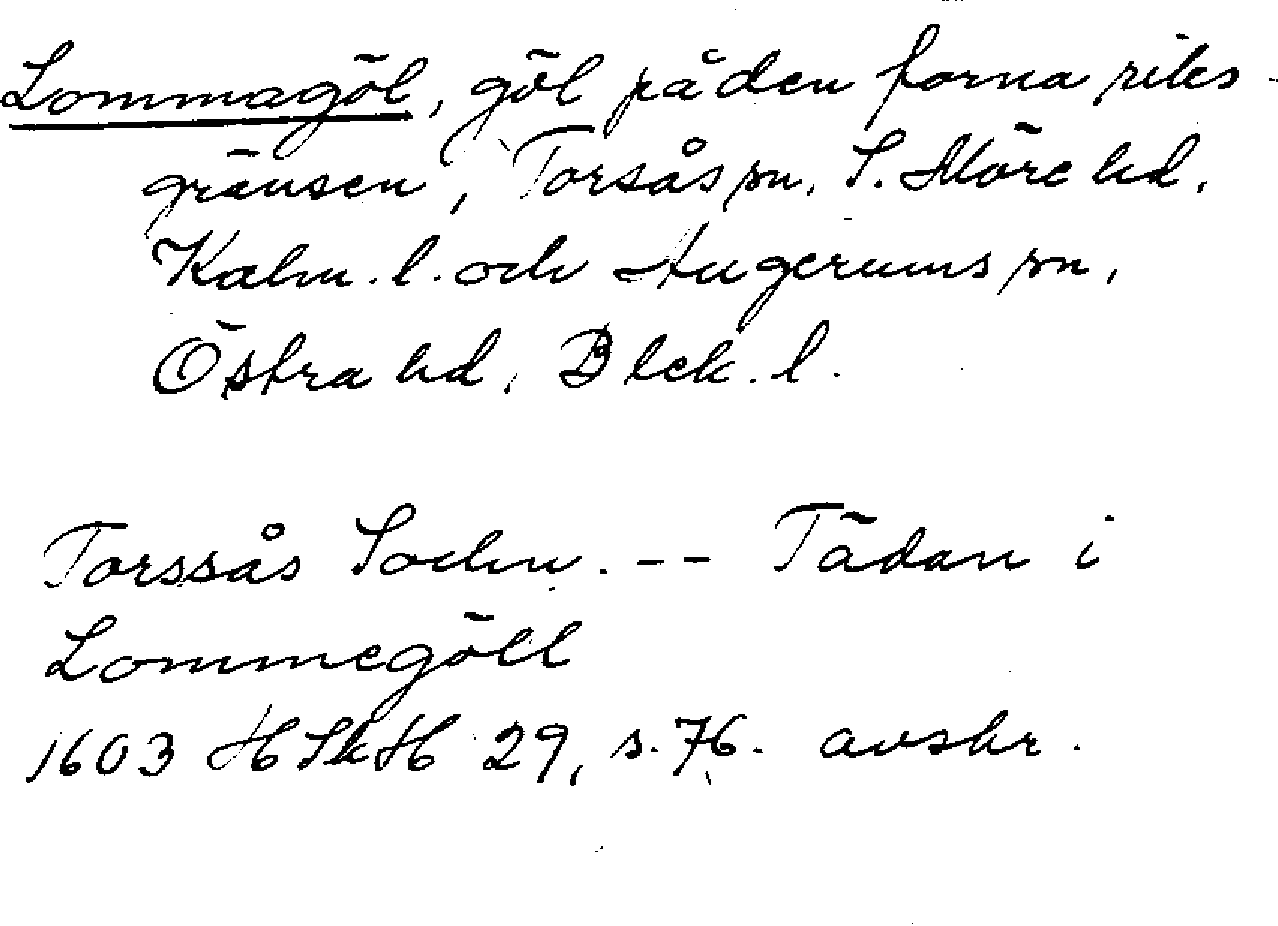 Lommagöl, göl på den forna riks-
gränsen, Torsås sn, S. Möre hd,
Kalm. l. och Augerums sn,
Östra hd, Blek. l.
Torssås Sochn. -- Tädan i
Lommegöll
1603 HSkH 29, s. 76. avskr.